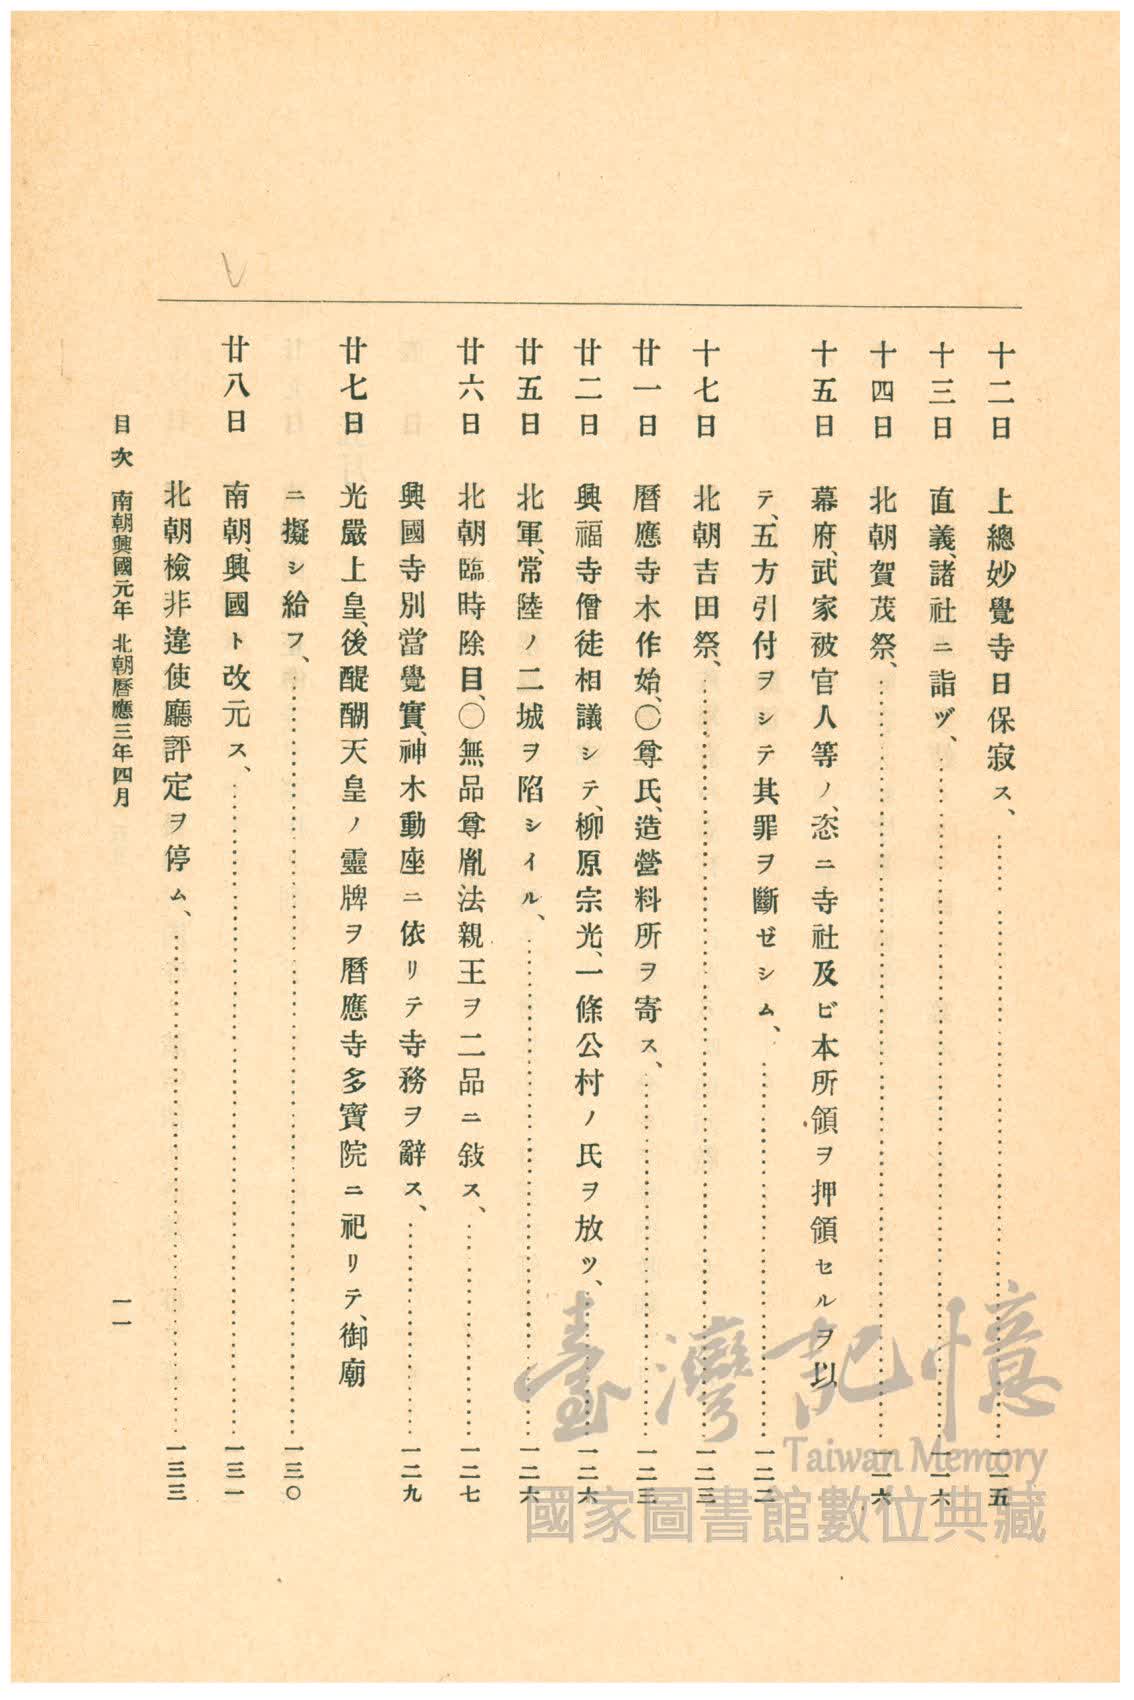 十二日 上總妙覺寺日保寂ス、……一一五
十三日 直義、諸社ニ詣ヅ、……一一六
十四日 北朝賀茂祭、……一一六
十五日 幕府、武家被官人等ノ、恣ニ寺社及ビ本所領ヲ押領セルヲ以
テ、五方引付ヲシテ其罪ヲ斷ゼシム、……一二二
十七日 北朝吉田祭、……一二三
廿一日 曆應寺木作始、〇尊氏、造營料所ヲ寄ス、……一二三
廿二日 興福寺僧徒相議シテ、柳原宗光、一條公村ノ氏ヲ放ツ、……一二六
廿五日 北軍、常陸ノ二城ヲ陷シイル、……一二六
廿六日 北朝臨時除目、〇無品尊胤法親王ヲ二品ニ敍ス、……一二七
興國寺別當覺實、神木動座ニ依リテ寺務ヲ辭ス、……一二九
廿七日 光嚴上皇、後醍醐天皇ノ靈牌ヲ曆應寺多寶院ニ祀リテ、御廟
ニ擬シ給フ、……一三〇
廿八日 南朝、興國ト改元ス、……一三一
北朝檢非違使廳評定ヲ停ム、……一三三
目次 南朝興國元年 北朝曆應三年四月 一一
臺灣記憶
Taiwan Memory
國家圖書館數位典藏